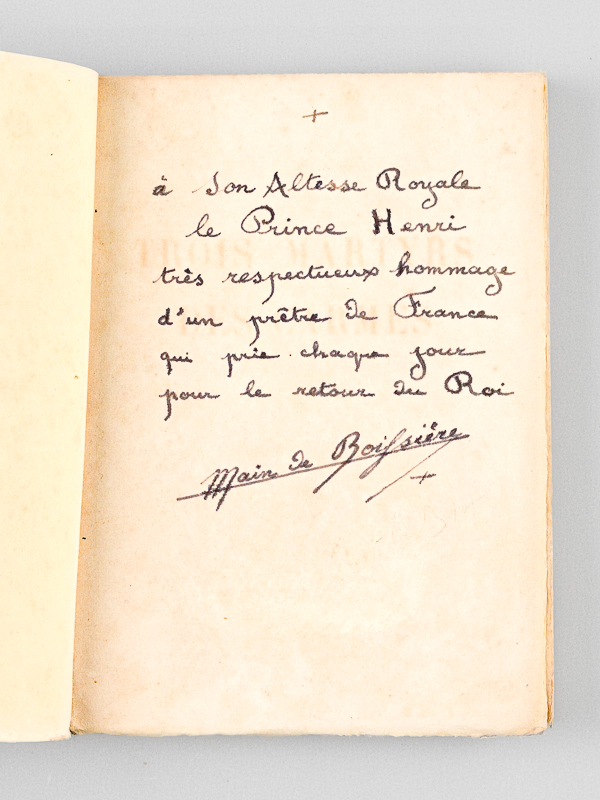 +
à Son Altesse Royale
le Prince Henri
très respectueux hommage
d'un prêtre de France
qui prie chaque jour
pour le retour du Roi
Main de Boissière
+
TROIS MARTYRS